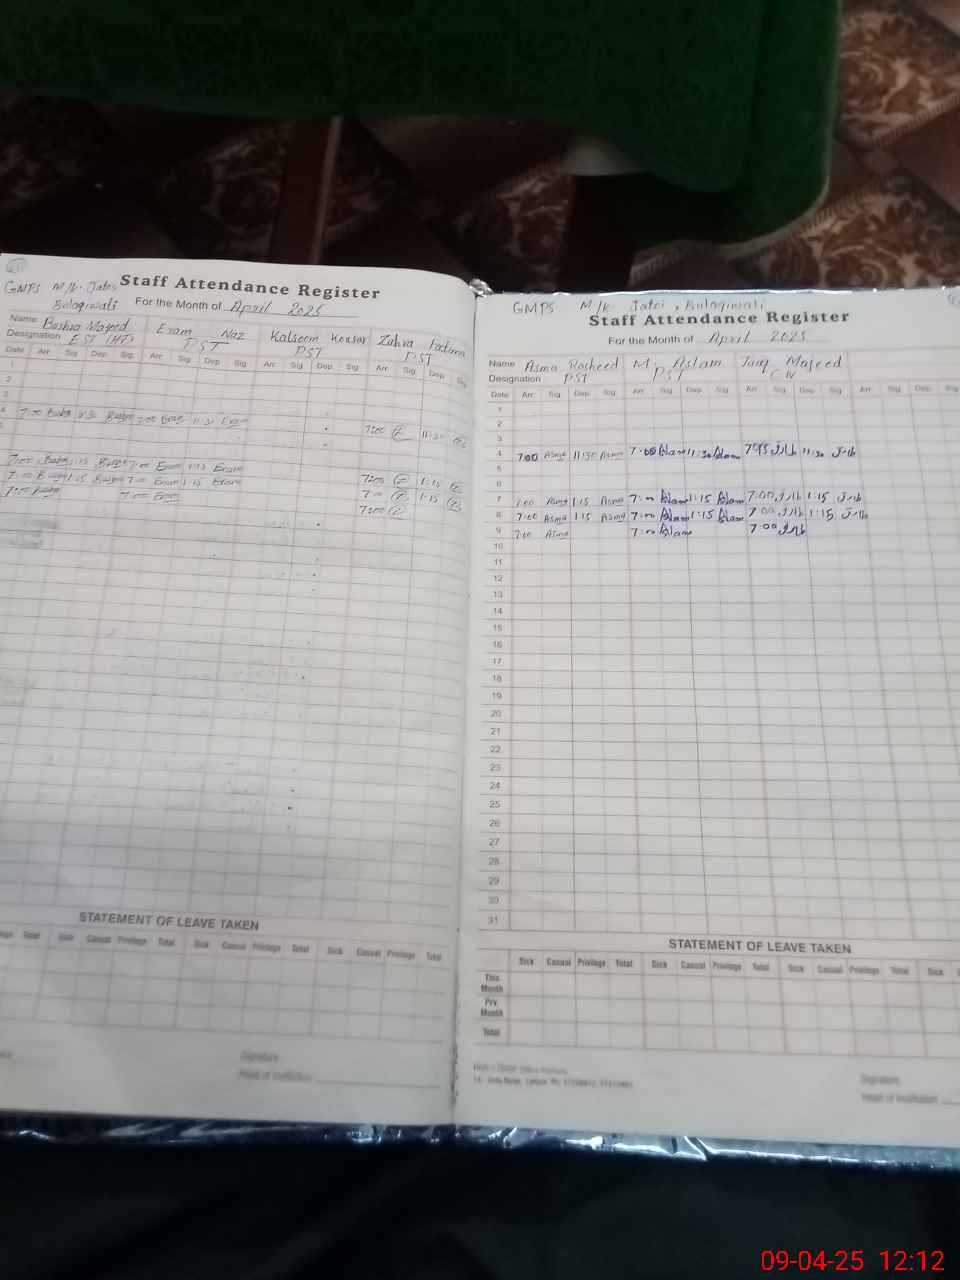 GMPS M/K. Jatoi
Bulaqiwali
Staff Attendance Register
For the Month of April 2025
Name Bushra Majeed Eram Naz Kalsoom Kousar Zuhra Batana
Designation EST (HT) PST PST PST
Date Arr. Sig. Dep. Sig. Arr. Sig. Dep. Sig. Arr. Sig. Dep. Sig. Arr. Sig. Dep. Sig.
1
2
3
4 7:00 Bushra 11:30 Bushra 7:00 Eram 11:30 Eram 7:00 11:30
5
7:00 Bushra 1:15 Bushra 7:00 Eram 1:15 Eram 7:00 1:15
7:00 Bushra 1:15 Bushra 7:00 Eram 1:15 Eram 7:00 1:15
7:00 Bushra 7:00 Eram 7:00
STATEMENT OF LEAVE TAKEN
Total Sick Casual Privilege Total Sick Casual Privilege Total Sick Casual Privilege Total
Signature,
Head of Institution
GMPS M/K Jatoi, Bulaqiwali
Staff Attendance Register
For the Month of April 2025
Name Asma Rasheed M. Aslam Tariq Majeed
Designation PST PST CIV
Date Arr. Sig. Dep. Sig. Arr. Sig. Dep. Sig. Arr. Sig. Dep. Sig. Dep. Sig.
1
2
3
4 7:00 Asma 11:30 Asma 7:00 Aslam 11:30 Aslam طارق 11:30 طارق
5
6
7 7:00 Asma 1:15 Asma 7:00 Aslam 1:15 Aslam 7:00 طارق 1:15 طارق
8 7:00 Asma 1:15 Asma 7:00 Aslam 1:15 Aslam 7:00 طارق 1:15 طارق
9 7:00 Asma 7:00 Aslam 7:00 طارق
10
11
12
13
14
15
16
17
18
19
20
21
22
23
24
25
26
27
28
29
30
31
STATEMENT OF LEAVE TAKEN
Sick Casual Privilege Total Sick Casual Privilege Total Sick Casual Privilege Total Sick
This Month
Prv. Month
Total
Signature,
Head of Institution
09-04-25 12:12